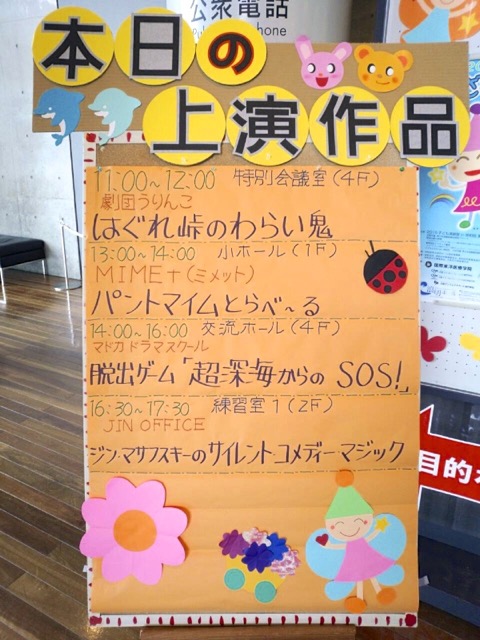 公衆電話
本日の
上演作品
11:00~12:00 特別会議室(4F)
劇団うりんこ
はぐれ峠のわらい鬼
13:00~14:00 小ホール(1F)
MIME+(ミメット)
パントマイムとらべ~る
14:00~16:00 交流ホール(4F)
マドカドラマスクール
脱出ゲーム「超深海からの SOS!」
16:30~17:30 練習室1(2F)
JIN OFFICE
ジン・マサフスキーのサイレントコメディーマジック
目的